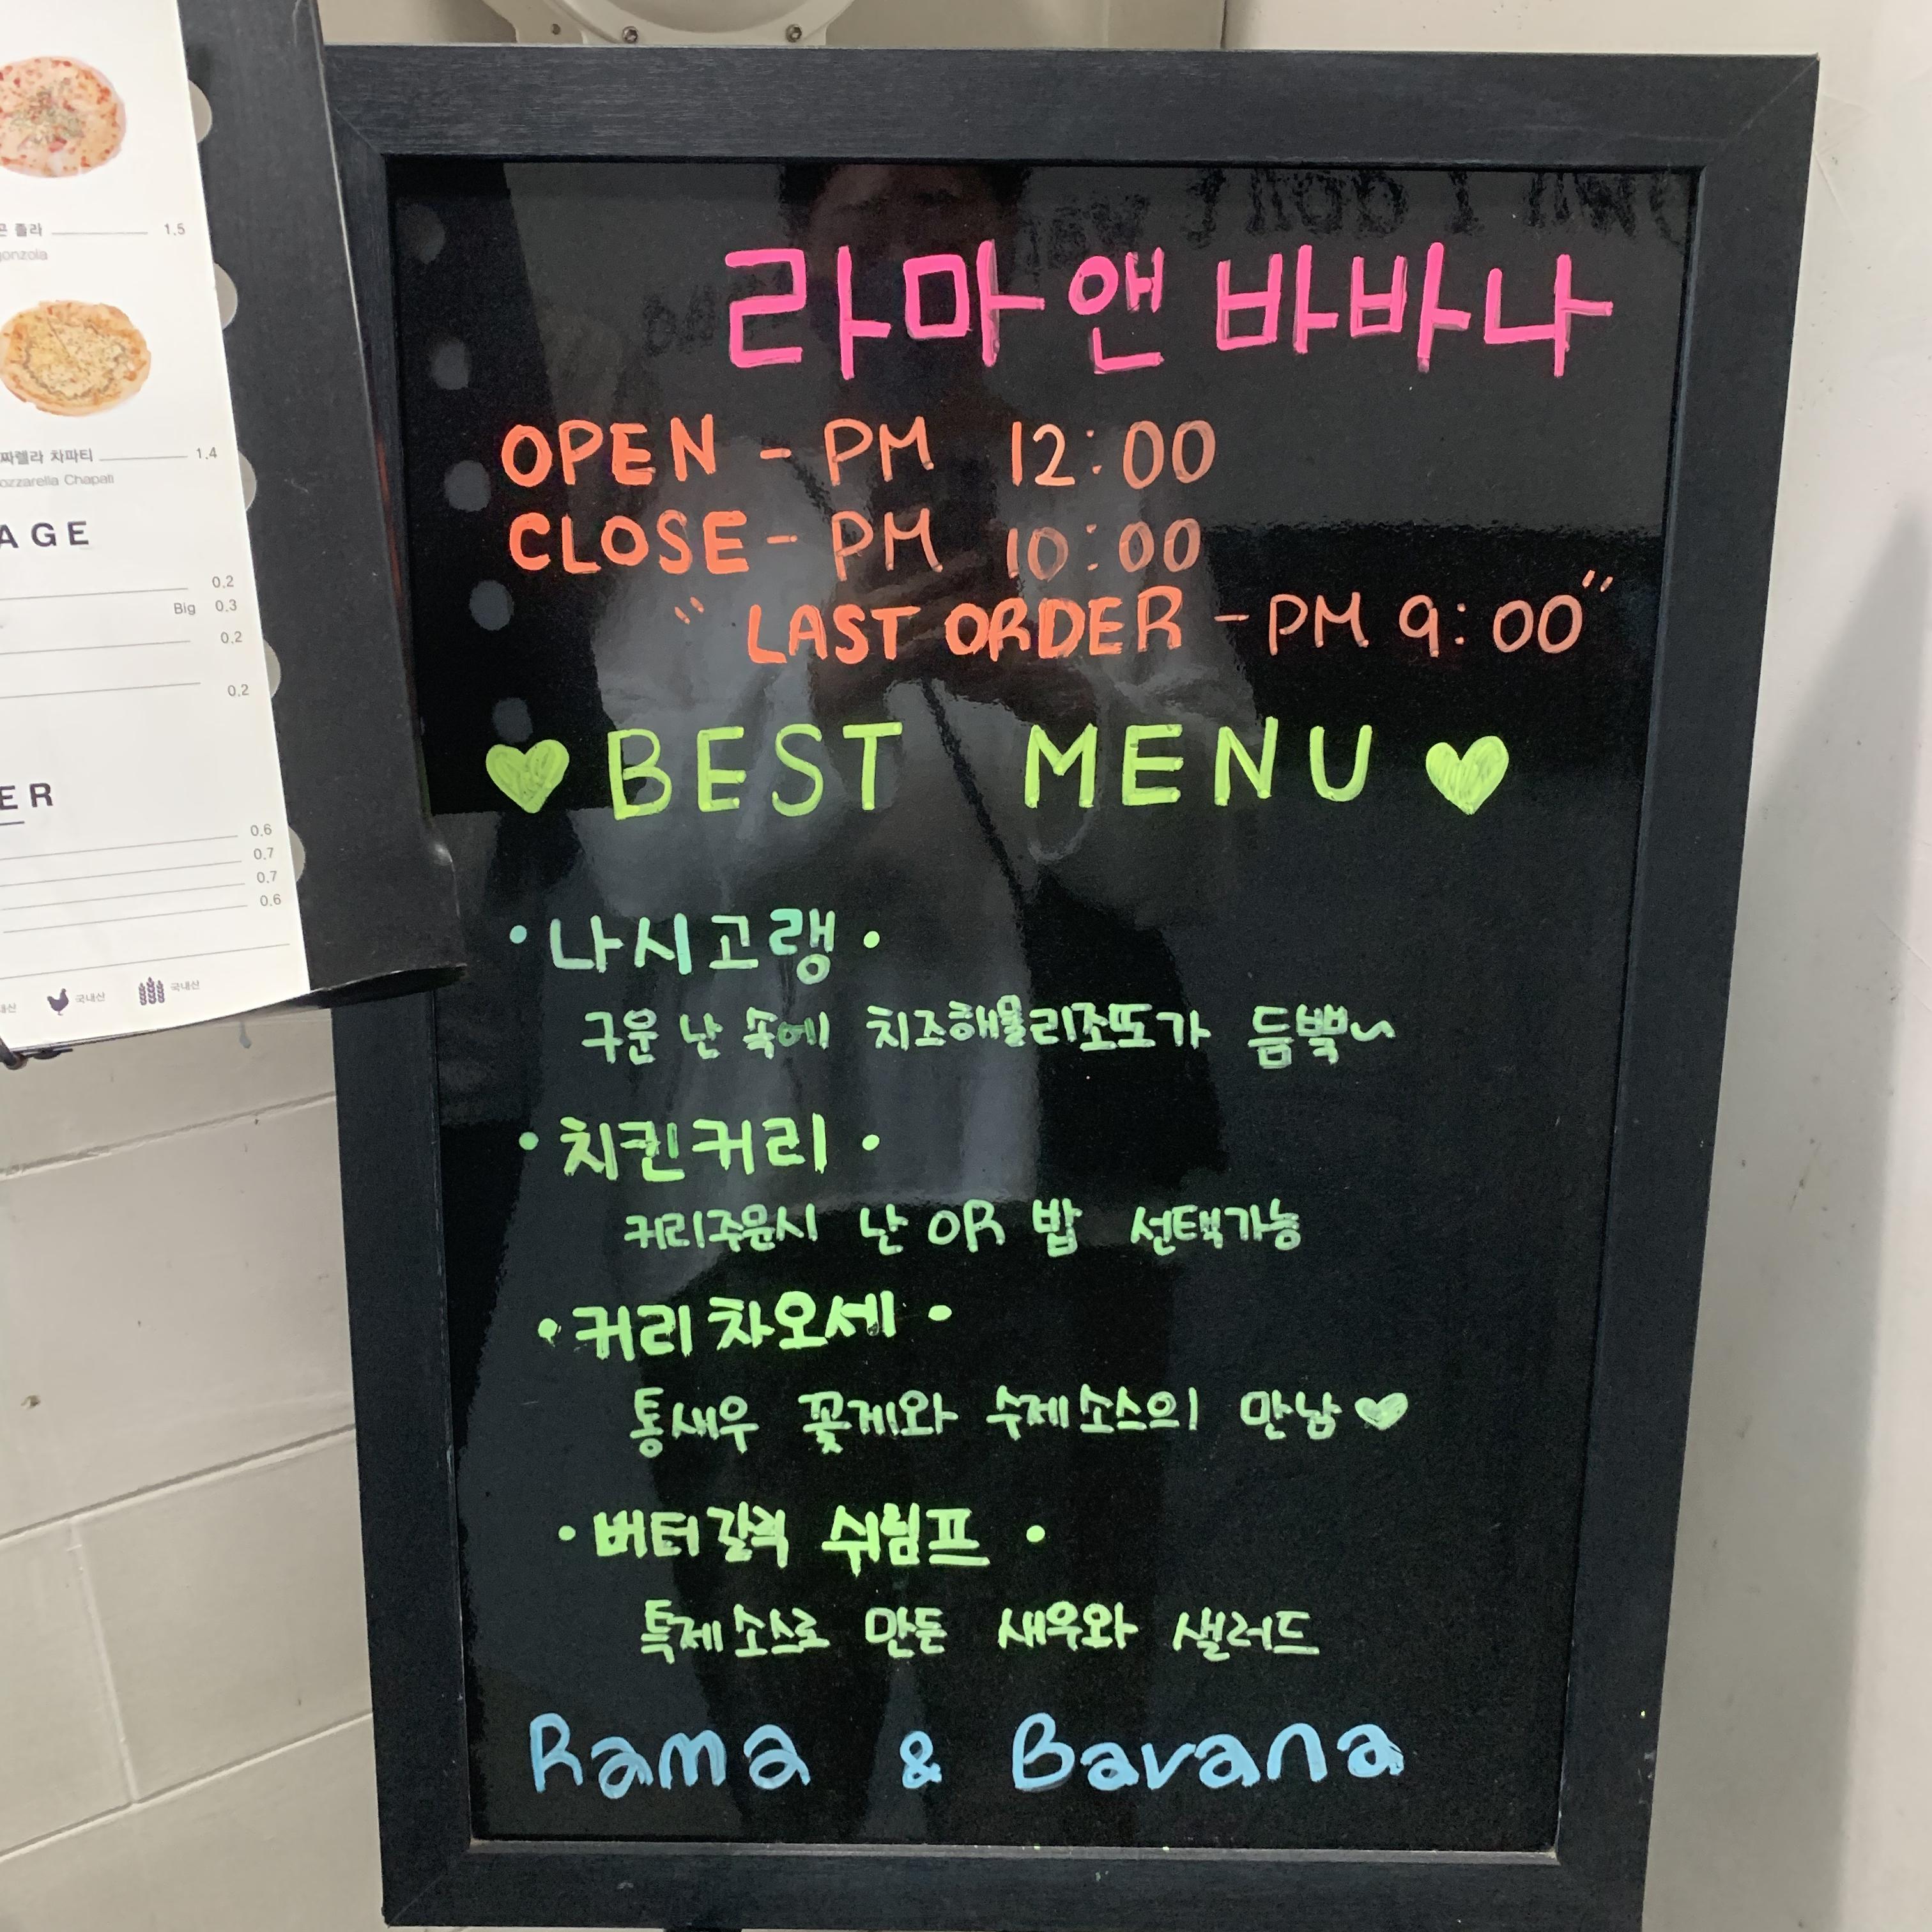 곤졸라 1.5
gonzola
짜렐라 차파티 1.4
ozzarella Chapati
AGE
0.2
Big 0.3
0.2
0.2
ER
0.6
0.7
0.7
0.6
국내산 국내산
라마앤바바나
OPEN - PM 12:00
CLOSE - PM 10:00
" LAST ORDER - PM 9:00 "
♥ BEST MENU ♥
• 나시고랭 •
구운 난 속에 치즈해물리조또가 듬뿍~
• 치킨커리 •
커리주문시 난 OR 밥 선택가능
• 커리차오세 •
통새우 꽃게와 수제소스의 만남♥
• 버터갈릭 쉬림프 •
특제소스로 만든 새우와 샐러드
Rama & Bavana